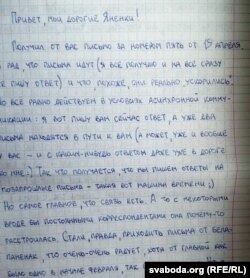 Привет, мои дорогие Яненки!
Получил от вас письмо за номером пять от 15 апреля.
Рад, что письма идут (я все получаю и на все сразу
же пишу ответ) и что, похоже, они реально ускорились.
Но всё равно действуем в условиях асинхронной комму-
никации: я вот пишу вам сейчас ответ, а уже два
письма находятся в пути к вам (а может, уже и вообще
у вас - и с каким-нибудь ответом даже уже в дороге
ко мне.) Так что получается, что вы пишем ответы на
позапрошлые письма - такая вот машина времени ;)
Но самое главное, что связь есть. А то с некоторыми
вроде бы постоянными корреспондентами она почему-то
расстроилась. Стали, правда, приходить письма от Бела-
паненак, что очень-очень радует, хотя от главной как
было одно в начале февраля, так
svaboda.org (RFE/RL)